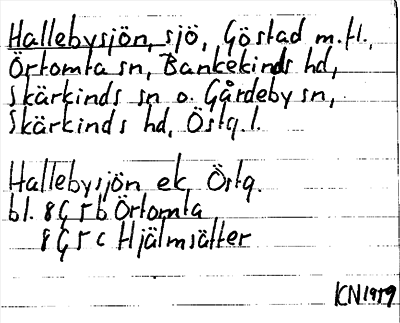 Hallebysjön, sjö, Göstad m.fl.,
Örtomta sn, Bankekinds hd,
Skärkinds sn o. Gårdeby sn,
Skärkinds hd, Östg. l.
Hallebysjön ek. Östg.
bl. 8G 5b Örtomta
8G 5c Hjälmsätter
KN 1959